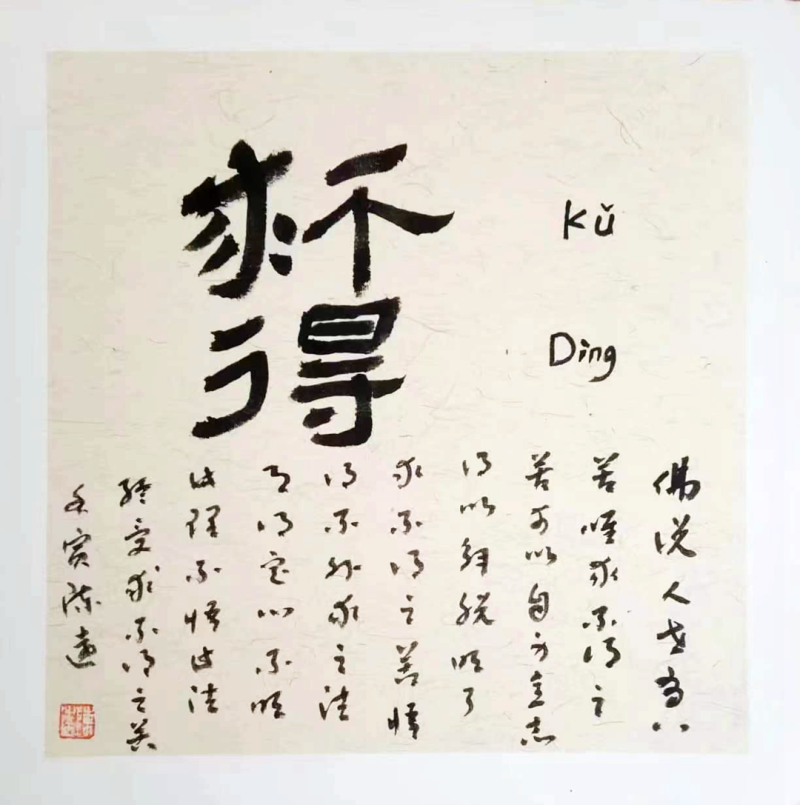 求不得
Kǔ
Dìng
佛说人世有八
苦唯求不得之
苦可以自身意志
得以解脱明了
求不得之苦悟
得不外求之法
得定心不明
此理不悟此法
终受求不得之苦
壬寅陈